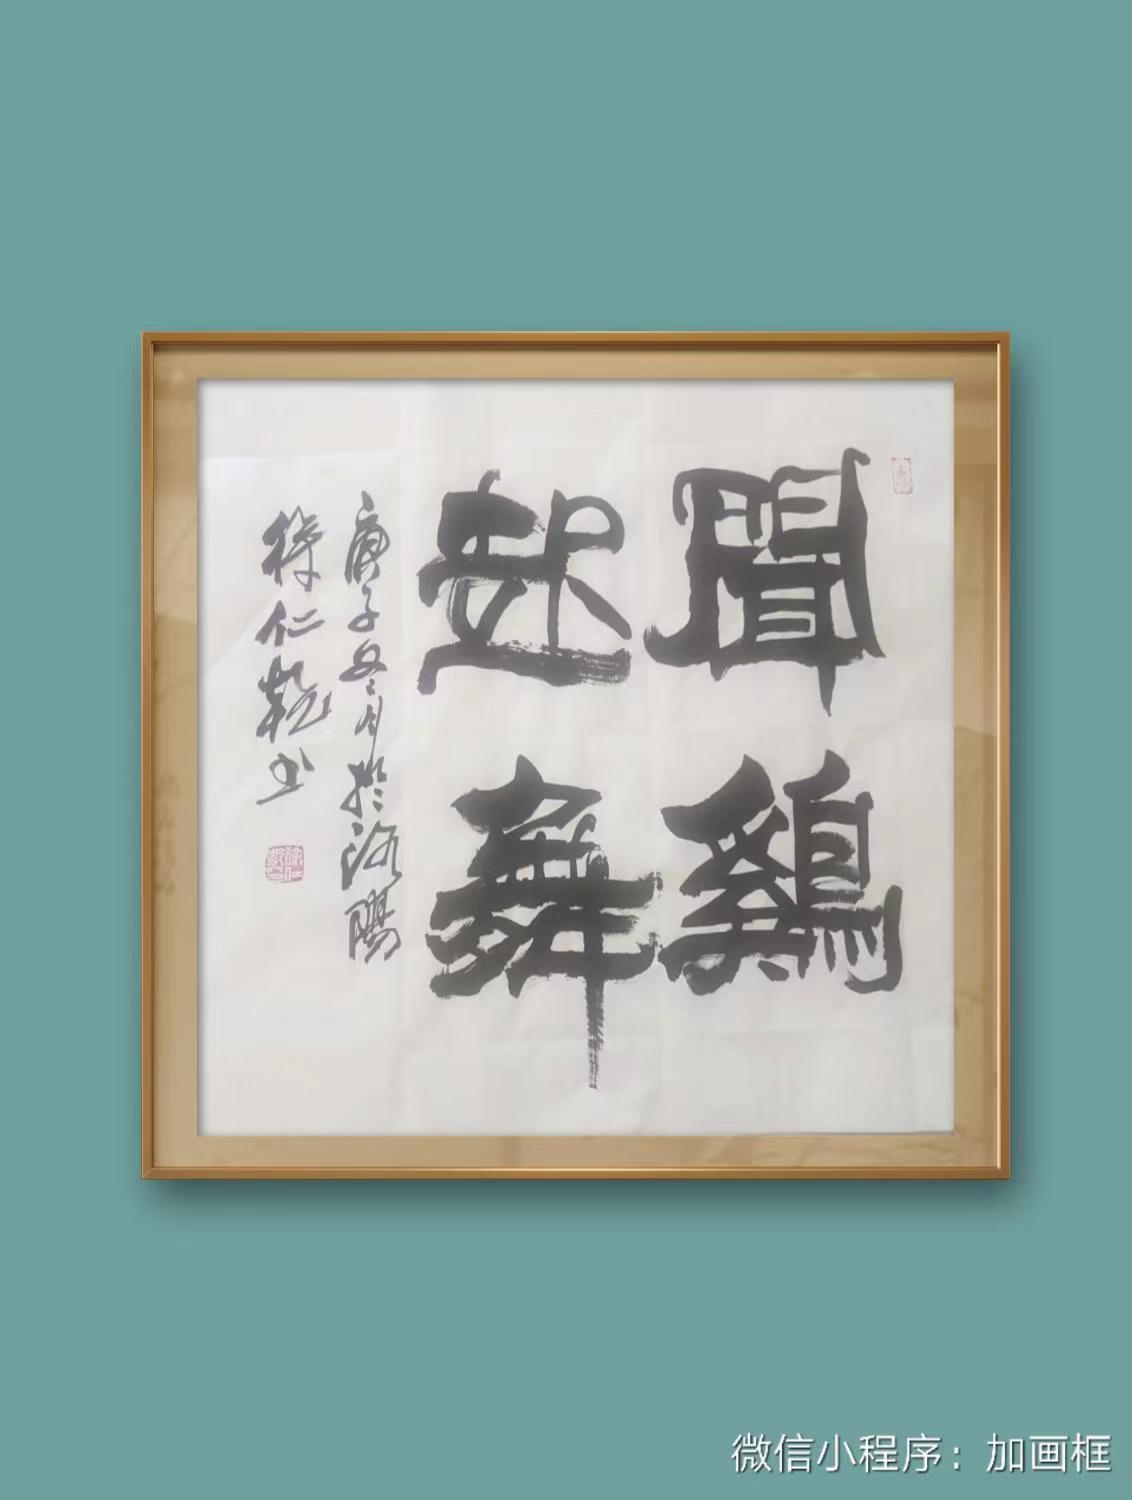 聞鷄
起舞
庚子冬月於洛陽
徐仁乾书
微信小程序：加画框